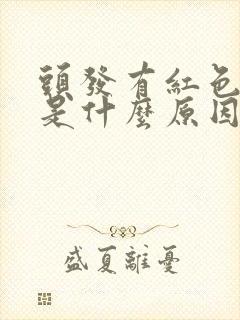 頭發有紅色
是什麼原因
盛夏離憂